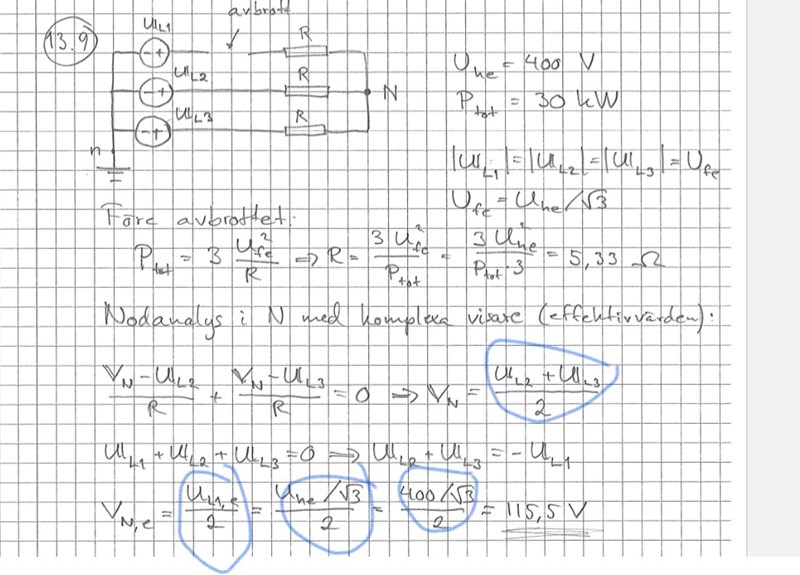 13.9
U_L1
avbrott
R
U_L2
R
N
U_L3
R
n
U_he = 400 V
P_tot = 30 kW
|U_L1| = |U_L2| = |U_L3| = U_fe
U_fe = U_he/√3
Före avbrottet:
P_tot = 3 U_fe²/R ⇒ R = 3 U_fe²/P_tot = 3 U_he²/(P_tot · 3) = 5,33 Ω
Nodanalys i N med komplexa visare (effektivvärden):
(V_N - U_L2)/R + (V_N - U_L3)/R = 0 ⇒ V_N = (U_L2 + U_L3)/2
U_L1 + U_L2 + U_L3 = 0 ⇒ U_L2 + U_L3 = - U_L1
V_N,e = U_L1,e/2 = (U_he/√3)/2 = (400/√3)/2 = 115,5 V